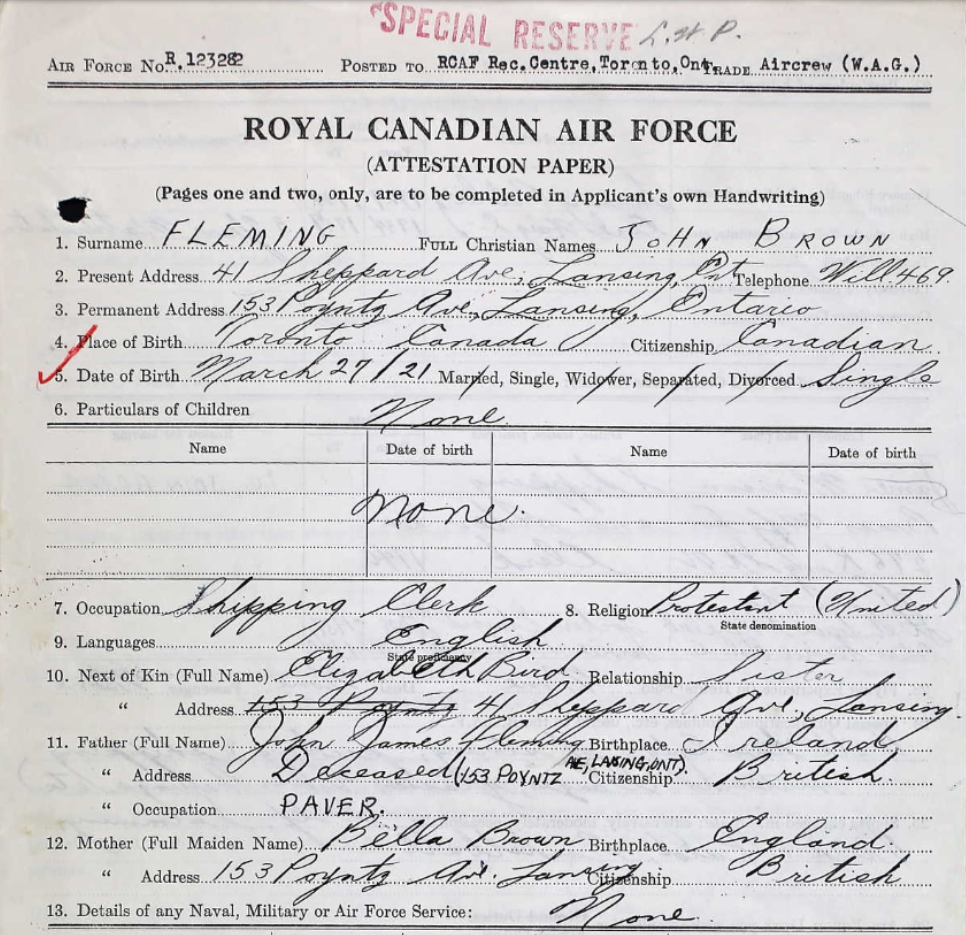 SPECIAL RESERVE L.W.P.
AIR FORCE No. R.123282 POSTED TO RCAF Rec.Centre,Toronto,Ont. TRADE Aircrew (W.A.G.)
ROYAL CANADIAN AIR FORCE
(ATTESTATION PAPER)
(Pages one and two, only, are to be completed in Applicant's own Handwriting)
1. Surname FLEMING FULL Christian Names JOHN BROWN
2. Present Address 41 Sheppard Ave., Lansing, Ont Telephone Will.469.
3. Permanent Address 153 Poyntz Ave., Lansing, Ontario
4. Place of Birth Toronto Canada Citizenship Canadian.
5. Date of Birth March 27/21 Married, Single, Widower, Separated, Divorced Single
6. Particulars of Children None.
Name Date of birth Name Date of birth
None.
7. Occupation Shipping Clerk 8. Religion Protestant (United)
State denomination
9. Languages English
State proficiency
10. Next of Kin (Full Name) Elizabeth Burd. Relationship Sister
" Address 153 Poyntz 41 Sheppard Ave., Lansing.
11. Father (Full Name) John James Fleming. Birthplace Ireland,
" Address Deceased (153 POYNTZ AE, LANSING, ONT). Citizenship British.
" Occupation PAVER.
12. Mother (Full Maiden Name) Bella Brown Birthplace England.
" Address 153 Poyntz Ave. Lansing Citizenship British
13. Details of any Naval, Military or Air Force Service: None.